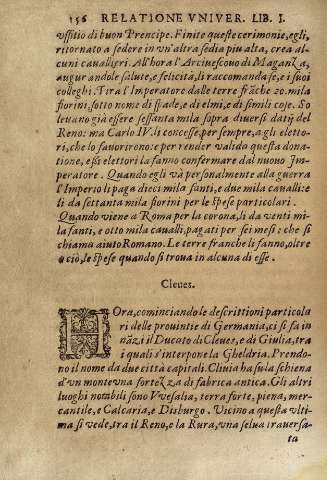 156 RELATIONE VNIVER. LIB. I.
vffitio di buon Prencipe. Finite queste cerimonie, egli,
ritornato a sedere in vn'altra sedia piu alta, crea al-
cuni cauallieri. All'hora l'Arciuescouo di Maganza,
augurandole salute, e felicità, li raccomanda se, e i suoi
colleghi. Tira l'Imperatore dalle terre frãche 20. mila
fiorini, sotto nome di spade, e di elmi, e di simili cose. So
leuano già essere sessanta mila sopra diuersi datij del
Reno: ma Carlo IV. li concesse, per sempre, a gli eletto-
ri, che lo fauorirono: e per render valido questa dona-
tione, essi elettori la fanno confermare dal nuouo Im-
peratore. Quando egli và personalmente alla guerra
l'Imperio li paga dieci mila fanti, e due mila caualli: e
li da settanta mila fiorini per le spese particolari.
Quando viene a Roma per la corona, li da venti mi-
la fanti, e otto mila caualli, pagati per sei mesi: che si
chiama aiuto Romano. Le terre franche li fanno, oltre
a ciò, le spese quando si troua in alcuna di esse.
Cleues.
HOra, cominciando le descrittioni particola
ri delle prouintie di Germania, ci si fa in
nãzi il Ducato di Cleues, e di Giulia, tra
i quali s'interpone la Gheldria. Prendo-
no il nome da due città capitali. Cliuia ha su la schiena
d'vn monte vna fortezza di fabrica antica. Gli altri
luoghi notabili sono Vuesalia, terra forte, piena, mer-
cantile, e Calcaria, e Disburgo. Vicino a questa vlti-
ma si vede, tra il Reno, e la Rura, vna selua trauersa-
ta